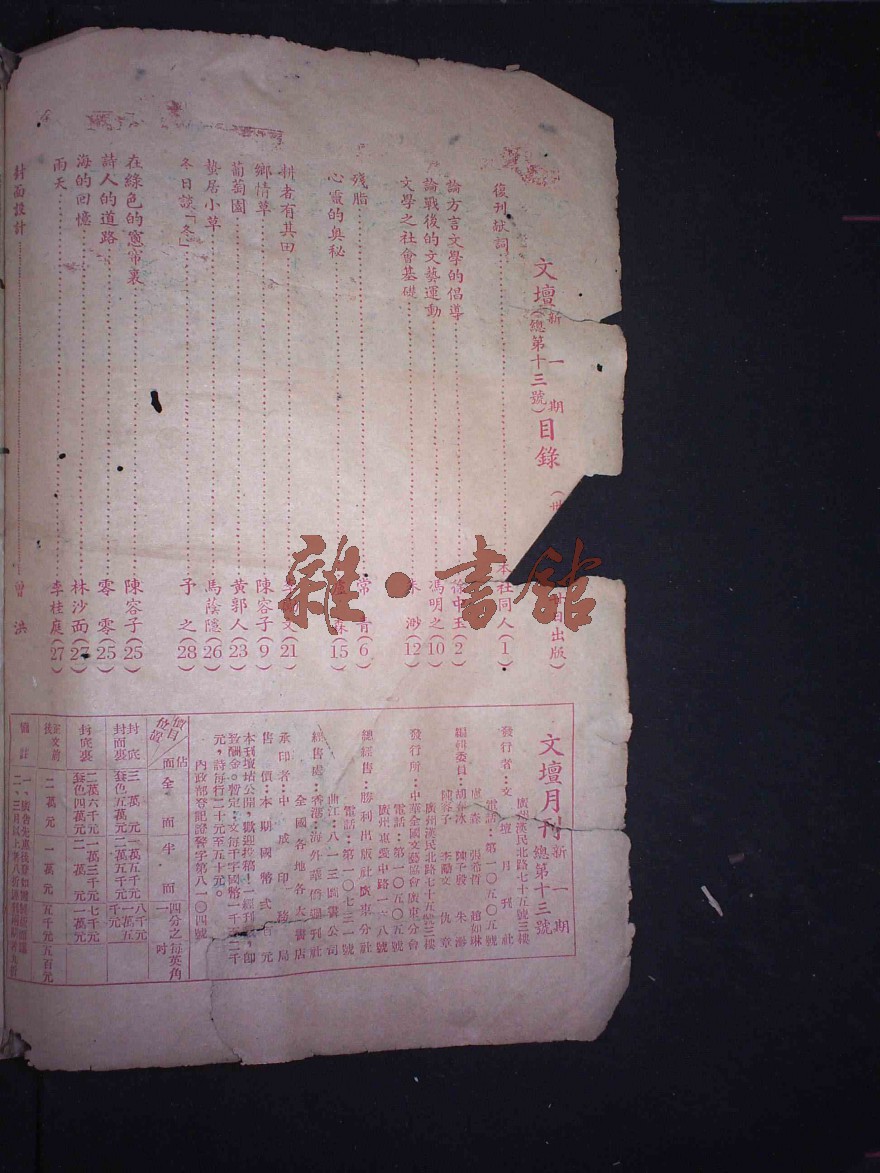 文壇新一期(總第十三號)目錄
日出版)
復刊献詞 本社同人(1)
論方言文學的倡導 徐中玉(2)
論戰後的文藝運動 馮明之(10)
文學之社會基礎 朱渺(12)
殘脂 常青(6)
心靈的奥秘 森(15)
耕者有其田 文(21)
鄉情草 陳容子(9)
葡萄園 黃郭人(23)
蟄居小草 馬蔭隱(26)
冬日談「冬」 予之(28)
在綠色的窗帘裏 陳容子(25)
詩人的道路 零零(25)
海的回憶 林沙面(27)
雨天 李桂庭(27)
封面設計 曾洪
雜·書館
文壇月刊 新一期 總第十三號
廣州漢民北路七十五號三樓
發行者:文壇月刊社
電話:第一〇五〇五號
盧森 張希哲 趙如琳
編輯委員: 陳予發 朱渺
陳容子 李勵文 仇章
廣州漢民北路七十五號三樓
發行所:中華全國文藝協會廣東分會
電話:第一〇五〇五號
廣州惠愛中路一六八號
總經售:勝利出版社廣東分社
電話:第一〇七三一號
曲江:八一三圖書公司
經售處:香港:海外華僑週刊社
全國各地各大書店
承印者:中成印務局
售價:本期國幣弍百元
本刊壇坫公開,歡迎投稿!一經刊載,卽
致酬金。暫定:文每千字國幣一千至二千
元,詩每行二十元至五十元。
內政部登記證警字第八一〇四號
價目 估面 全面 半面 四分之一 每英角吋
封底 封面裏 三萬元 套色五萬元 一萬五千元 二萬五千元 八千元 一萬五千元
封底裏 二萬六千元 套色四萬元 一萬三千元 二萬元 七千元 一萬元
正文前後 二萬元 一萬元 五千元 五百元
備註